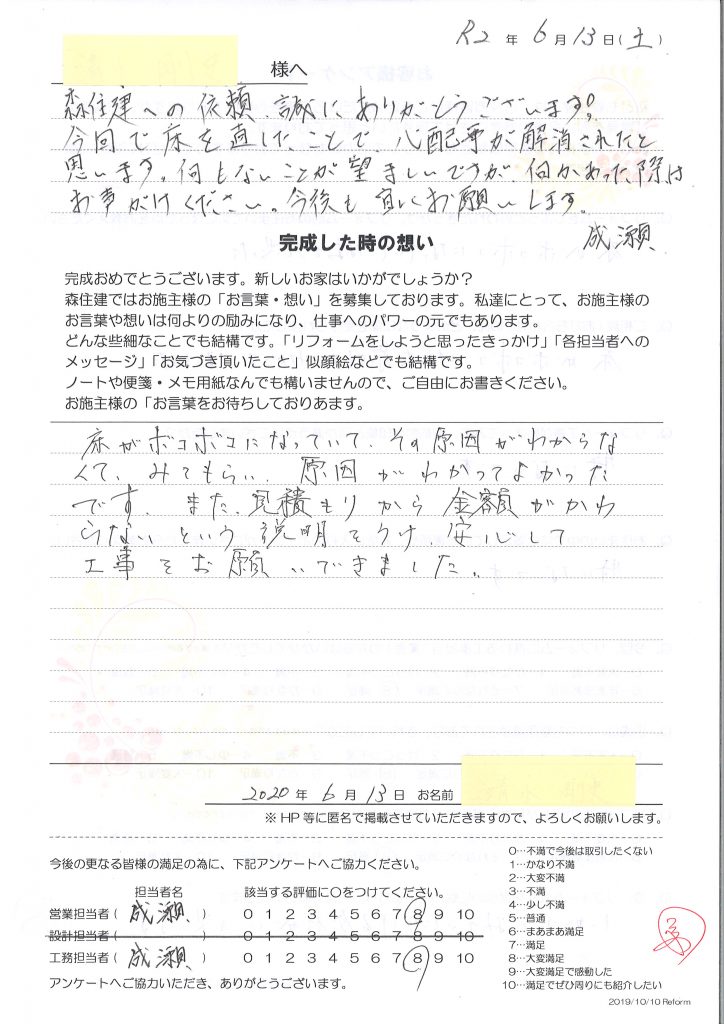 R2 年 6 月 13 日(土)
様へ
森住建への依頼、誠にありがとうございます。
今回で床を直したことで、心配事が解消されたと
思います。何もないことが望ましいですが、何かあった際は
お声がけください。今後も宜しくお願いします。
成瀬
完成した時の想い
完成おめでとうございます。新しいお家はいかがでしょうか？
森住建ではお施主様の「お言葉・想い」を募集しております。私達にとって、お施主様の
お言葉や想いは何よりの励みになり、仕事へのパワーの元でもあります。
どんな些細なことでも結構です。「リフォームをしようと思ったきっかけ」「各担当者への
メッセージ」「お気づき頂いたこと」似顔絵などでも結構です。
ノートや便箋・メモ用紙なんでも構いませんので、ご自由にお書きください。
お施主様の「お言葉をお待ちしておりあます。
床がボコボコになっていて、その原因がわからな
くて、みてもらい、原因がわかってよかった
です。また、見積もりから金額がかわ
らないという説明をうけ、安心して
工事をお願いできました。
2020 年 6 月 13 日 お名前
※ HP 等に匿名で掲載させていただきますので、よろしくお願いします。
今後の更なる皆様の満足の為に、下記アンケートへご協力ください。
担当者名 該当する評価に○をつけてください。
営業担当者( 成瀬 ) 0 1 2 3 4 5 6 7 8 9 10
設計担当者( ) 0 1 2 3 4 5 6 7 8 9 10
工務担当者( 成瀬 ) 0 1 2 3 4 5 6 7 8 9 10
アンケートへご協力いただき、ありがとうございます。
0…不満で今後は取引したくない
1…かなり不満
2…大変不満
3…不満
4…少し不満
5…普通
6…まあまあ満足
7…満足
8…大変満足
9…大変満足で感動した
10…満足でぜひ周りにも紹介したい
2019/10/10 Reform